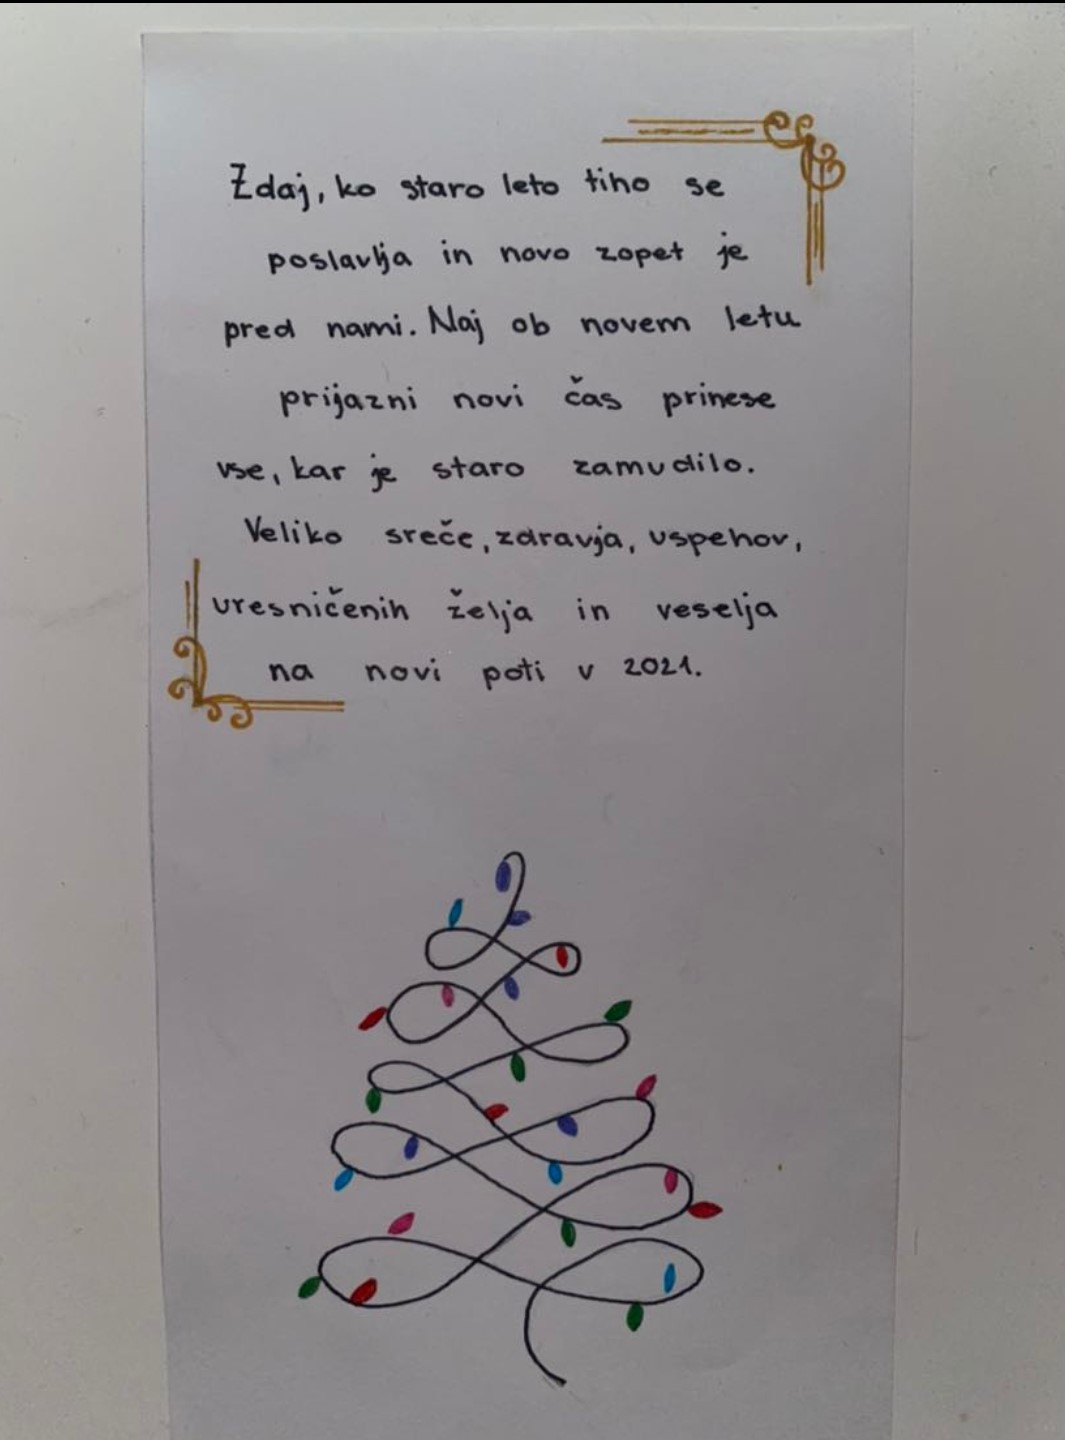 Zdaj, ko staro leto tiho se
poslavlja in novo zopet je
pred nami. Naj ob novem letu
prijazni novi čas prinese
vse, kar je staro zamudilo.
Veliko sreče, zdravja, uspehov,
uresničenih želja in veselja
na novi poti v 2021.